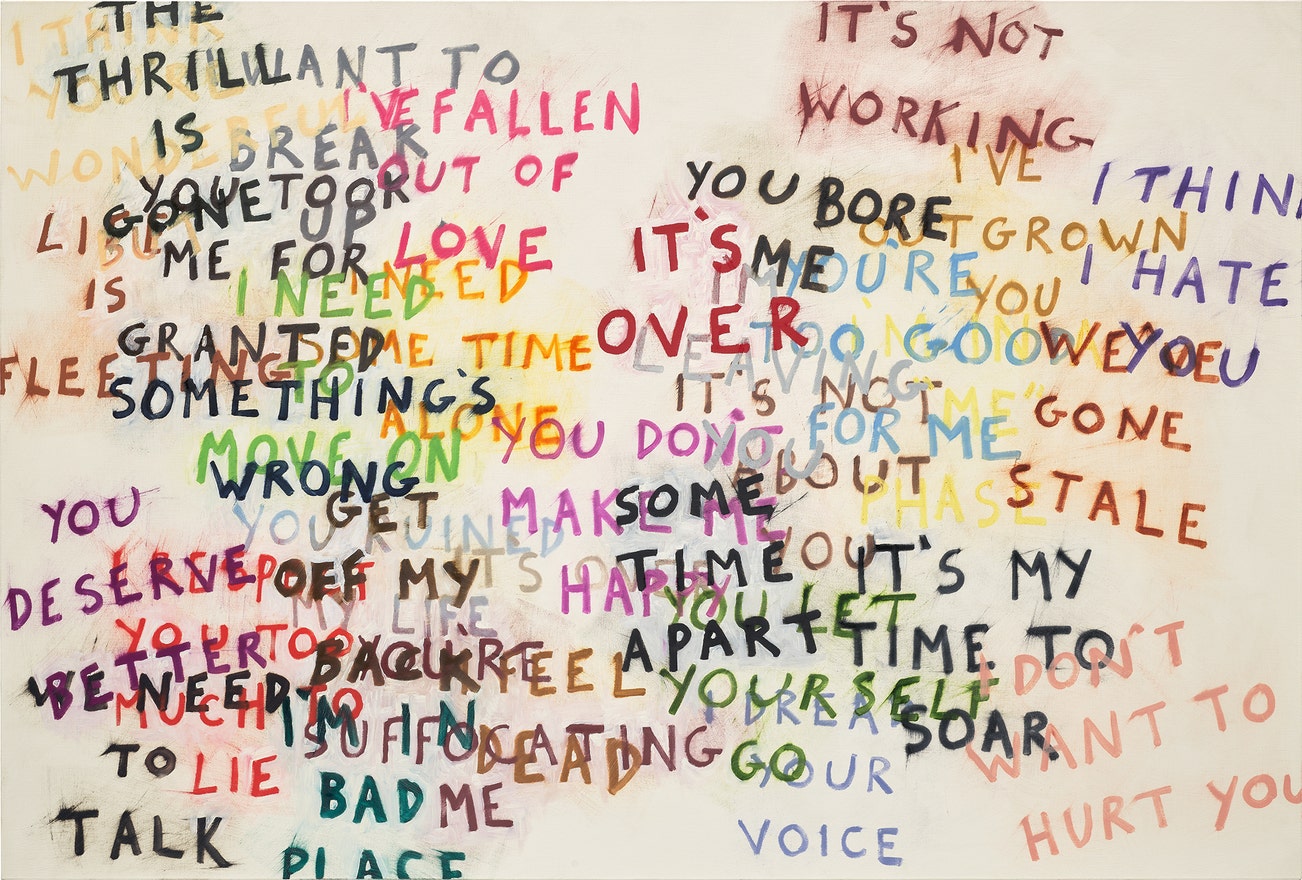 I THINK
YOU'RE
WONDERFUL
BUT
THE
THRILL
IS
GONE
I WANT TO
BREAK
UP
I'VE FALLEN
OUT OF
LOVE
IT'S NOT
WORKING
YOU TOOK
ME FOR
GRANTED
IS
FLEETING
I NEED
TO
MOVE ON
I NEED
SOME TIME
ALONE
YOU BORE
ME
IT'S
OVER
I'VE
OUTGROWN
YOU
I THIN
I HATE
YOU
YOU'RE
TOO GOOD
FOR ME
I'M
LEAVING
YOU
"ME"
PHASE
WE'VE
GONE
STALE
IT'S NOT
ABOUT
YOU
SOMETHING'S
WRONG
YOU DON'T
MAKE ME
HAPPY
YOU
DESERVE
BETTER
GET
OFF MY
BACK
YOU RUINED
MY LIFE
SOME
TIME
APART
IT'S MY
TIME TO
SOAR.
YOU LET
YOURSELF
GO
YOUR
VOICE
I DON'T
WANT TO
HURT YOU
YOU TOO
MUCH TO
LIE
WE NEED
TO
TALK
YOU'RE
SUFFOCATING
ME
FEEL
DEAD
I'M IN
BAD
PLACE